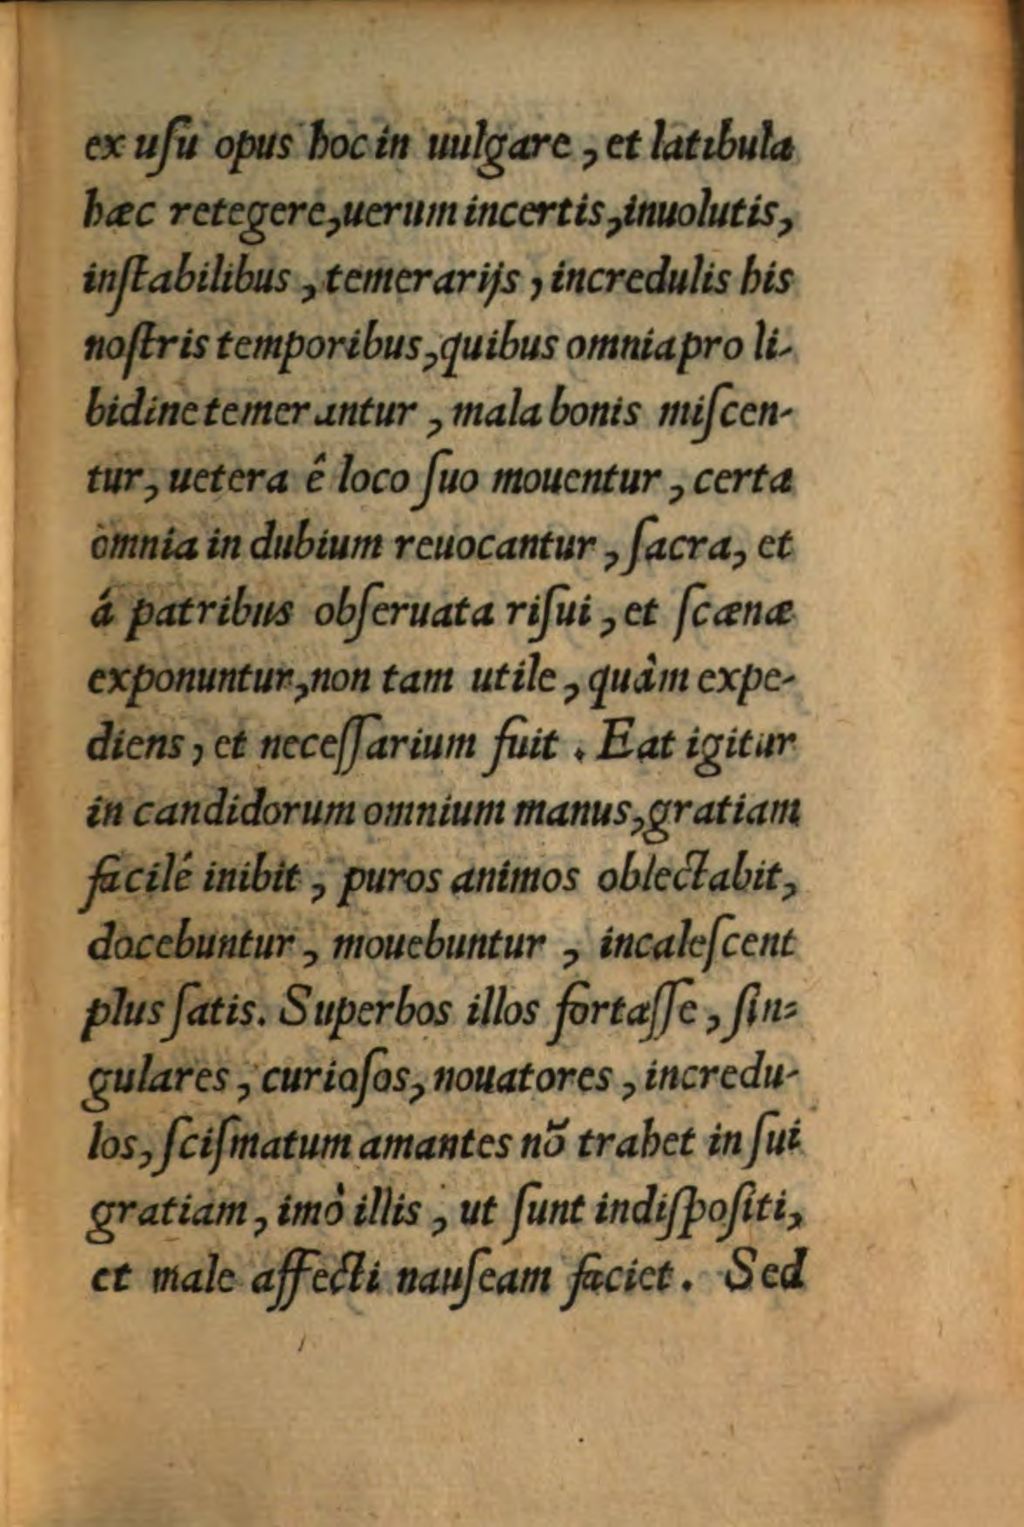 ex uſu opus hoc in uulgare, et latibula
hæc retegere, uerum incertis, inuolutis,
inſtabilibus, temerarijs, incredulis his
noſtris temporibus, quibus omnia pro li-
bidine temerantur, mala bonis miſcen-
tur, uetera ê loco ſuo mouentur, certa
omnia in dubium reuocantur, ſacra, et
á patribus obſeruata riſui, et ſcænæ
exponuntur, non tam utile, quàm expe-
diens, et neceſſarium fuit. Eat igitur
in candidorum omnium manus, gratiam
facilé inibit, puros animos oblectabit,
docebuntur, mouebuntur, incaleſcent
plus ſatis. Superbos illos fortaſſe, ſin-
gulares, curioſos, nouatores, incredu-
los, ſciſmatum amantes nõ trahet in ſui
gratiam, imò illis, ut ſunt indiſpoſiti,
et male affecti nauſeam faciet. Sed